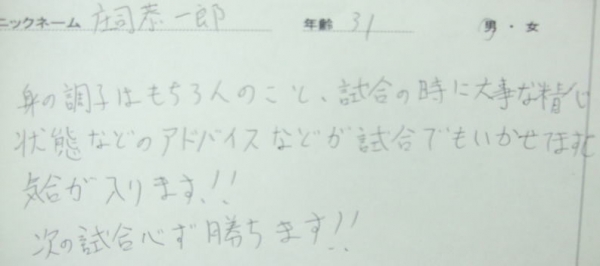 ニックネーム 庄司恭一郎 年齢 31 男・女
身の調子はもちろんのこと、試合の時に大事な精心
状態などのアドバイスなどが試合でもいかせてますし
気合が入ります!!
次の試合心ず勝ちます!!